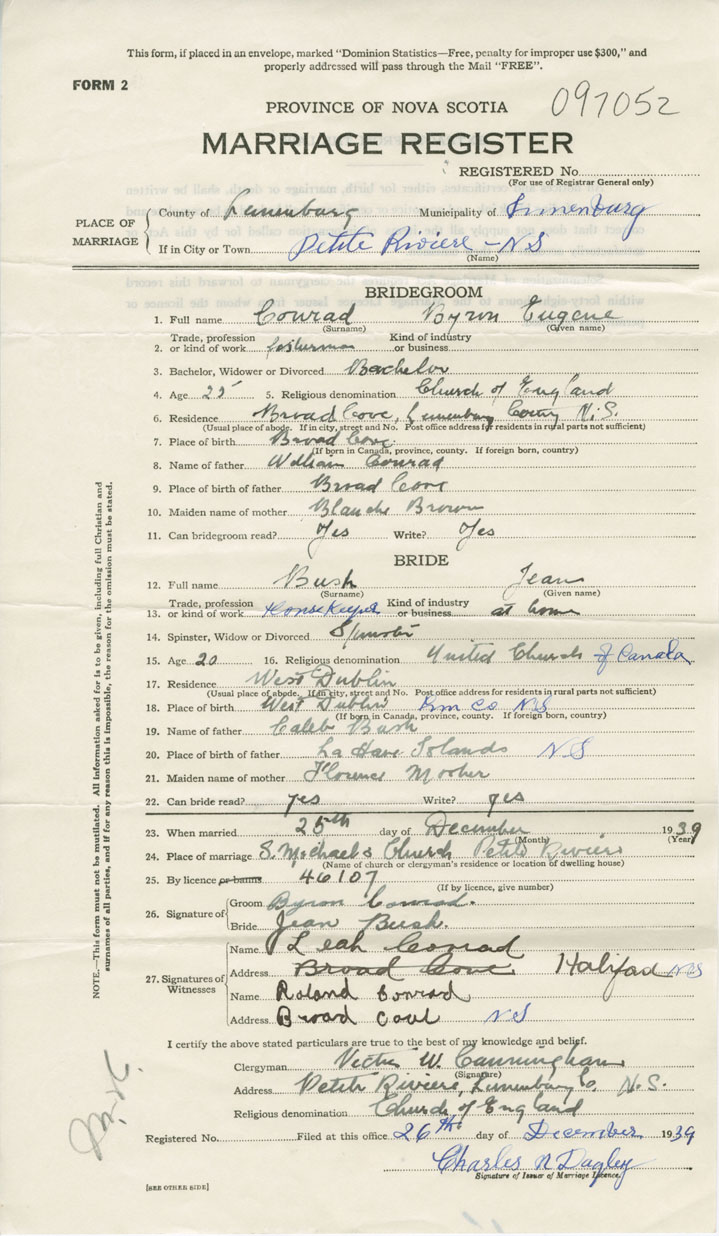 This form, if placed in an envelope, marked "Dominion Statistics—Free, penalty for improper use $300," and
properly addressed will pass through the Mail "FREE".
FORM 2
097052
PROVINCE OF NOVA SCOTIA
MARRIAGE REGISTER
REGISTERED No.
(For use of Registrar General only)
PLACE OF MARRIAGE
County of Lunenburg Municipality of Lunenburg
If in City or Town Petite Riviere - N S
(Name)
BRIDEGROOM
1. Full name Conrad Byron Eugene
(Surname) (Given name)
2. Trade, profession or kind of work fisherman Kind of industry or business
3. Bachelor, Widower or Divorced Bachelor
4. Age 25 5. Religious denomination Church of England
6. Residence Broad Cove, Lunenburg County N.S.
(Usual place of abode. If in city, street and No. Post office address for residents in rural parts not sufficient)
7. Place of birth Broad Cove
(If born in Canada, province, county. If foreign born, country)
8. Name of father William Conrad
9. Place of birth of father Broad Cove
10. Maiden name of mother Blanche Brown
11. Can bridegroom read? Yes Write? Yes
BRIDE
12. Full name Bush Jean
(Surname) (Given name)
13. Trade, profession or kind of work Housekeeper Kind of industry or business at home
14. Spinster, Widow or Divorced Spinster
15. Age 20 16. Religious denomination United Church of Canada
17. Residence West Dublin
(Usual place of abode. If in city, street and No. Post office address for residents in rural parts not sufficient)
18. Place of birth West Dublin Co N S
(If born in Canada, province, county. If foreign born, country)
19. Name of father Caleb Bush
20. Place of birth of father La Have Islands N S
21. Maiden name of mother Florence Mosher
22. Can bride read? yes Write? yes
23. When married 25th day of December 1939
(Month) (Year)
24. Place of marriage S. Michael's Church Petite Riviere
(Name of church or clergyman's residence or location of dwelling house)
25. By licence or banns 46107
(If by licence, give number)
26. Signature of
Groom Byron Conrad.
Bride Jean Bush.
27. Signatures of Witnesses
Name Leah Conrad
Address Broad Cove Halifax N S
Name Roland Conrad
Address Broad Cove N S
I certify the above stated particulars are true to the best of my knowledge and belief.
Clergyman W. Cunningham
(Signature)
Address Petite Riviere, Lunenburg Co. N.S.
Religious denomination Church of England
Registered No. Filed at this office 26th day of December 1939
Charles N Dagley
Signature of Issuer of Marriage Licence.
[SEE OTHER SIDE]
NOTE.—This form must not be mutilated. All information asked for is to be given, including full Christian and
surnames of all parties, and if for any reason this is impossible, the reason for the omission must be stated.